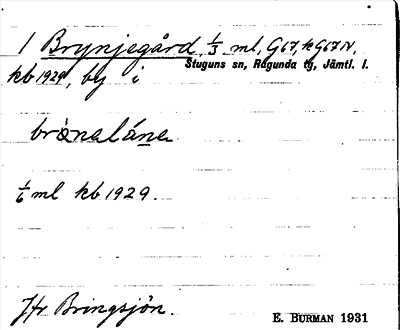 1 Brynjegård 1/3 ml, G67, kG67N,
Stuguns sn, Ragunda tg, Jämtl. l.
kb 1929, by i
brònalána
1/6 ml kb 1929.
Jfr Bringsjön.
E. BURMAN 1931